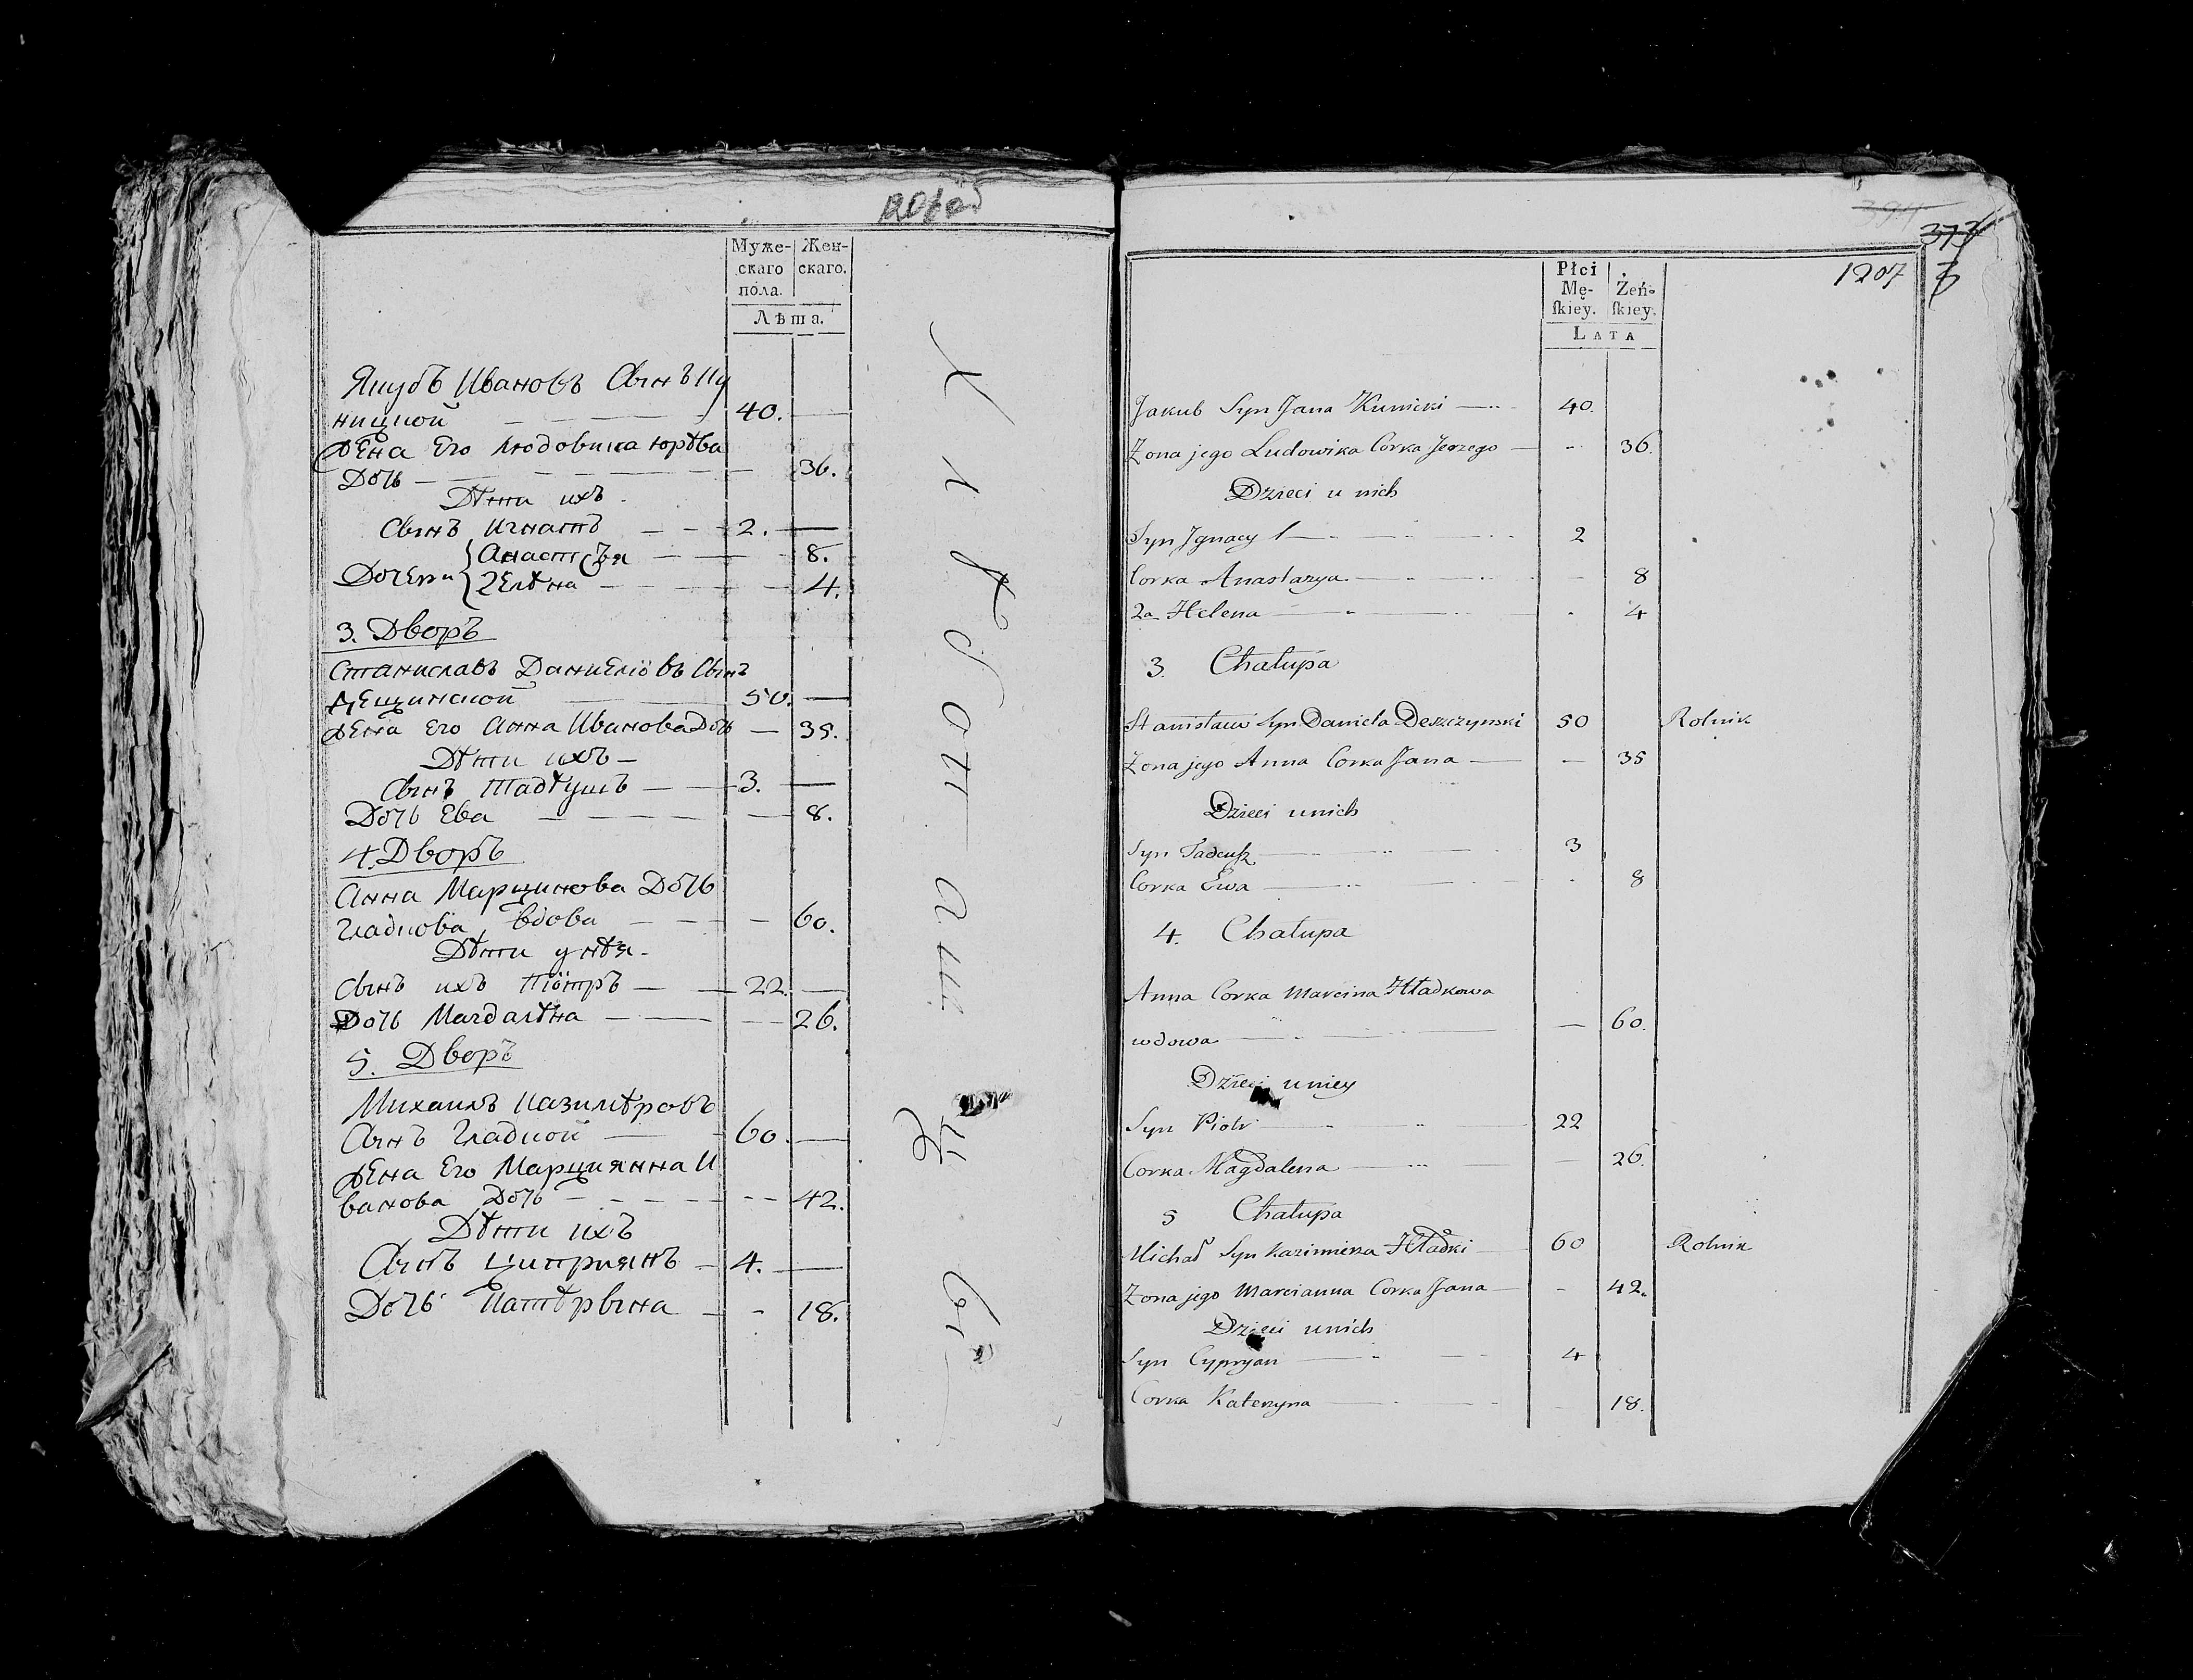 Муже-
скаго
пола.
Жен-
скаго.
Лѣта.
Якубъ Ивановъ Сынъ Ку
ницкой 40.
Жена Его Людовика Юрева
Дочь 36.
Дѣти ихъ
Сынъ Игнатъ 2.
Дочери Анастсъя 8.
2 Елѣна 4.
3. Дворъ
Станиславъ Даниеліовъ Сынъ
Дещинской 50.
Жена Его Анна Иванова Дочь 35.
Дѣти ихъ
Сынъ Тадѣушъ 3.
Дочь Ева 8.
4. Дворъ
Анна Марцинова Дочь
Гладкова вдова 60.
Дѣти у нѣя
Сынъ ихъ Піотръ 22.
Дочь Магдалѣна 26.
5. Дворъ
Михаилъ Казимѣровъ
Сынъ Гладкой 60.
Жена Его Марциянна И
ванова Дочь 42.
Дѣти ихъ
Сынъ Циприянъ 4.
Дочь Катѣрына 18.
1207
Płci
Mę-
skiey.
Żeń-
skiey.
LATA
Jakub Syn Jana Kunicki 40.
Zona jego Ludowika Corka Jerzego 36.
Dzieci u nich
Syn Jgnacy 2
Corka Anastazya 8
2a Helena 4
3. Chałupa
Stanisław Syn Daniela Deszczynski 50 Rolnik
Zona jego Anna Corka Jana 35
Dzieci u nich
Syn Tadeusz 3
Corka Ewa 8
4. Chałupa
Anna Corka Marcina Hładkowa
wdowa 60.
Dzieci u niey
Syn Piotr 22
Corka Magdalena 26.
5 Chałupa
Michał Syn Kazimierza Hładki 60 Rolnik
Zona jego Marcianna Corka Jana 42.
Dzieci u nich
Syn Cypryan 4
Corka Katerzyna 18.